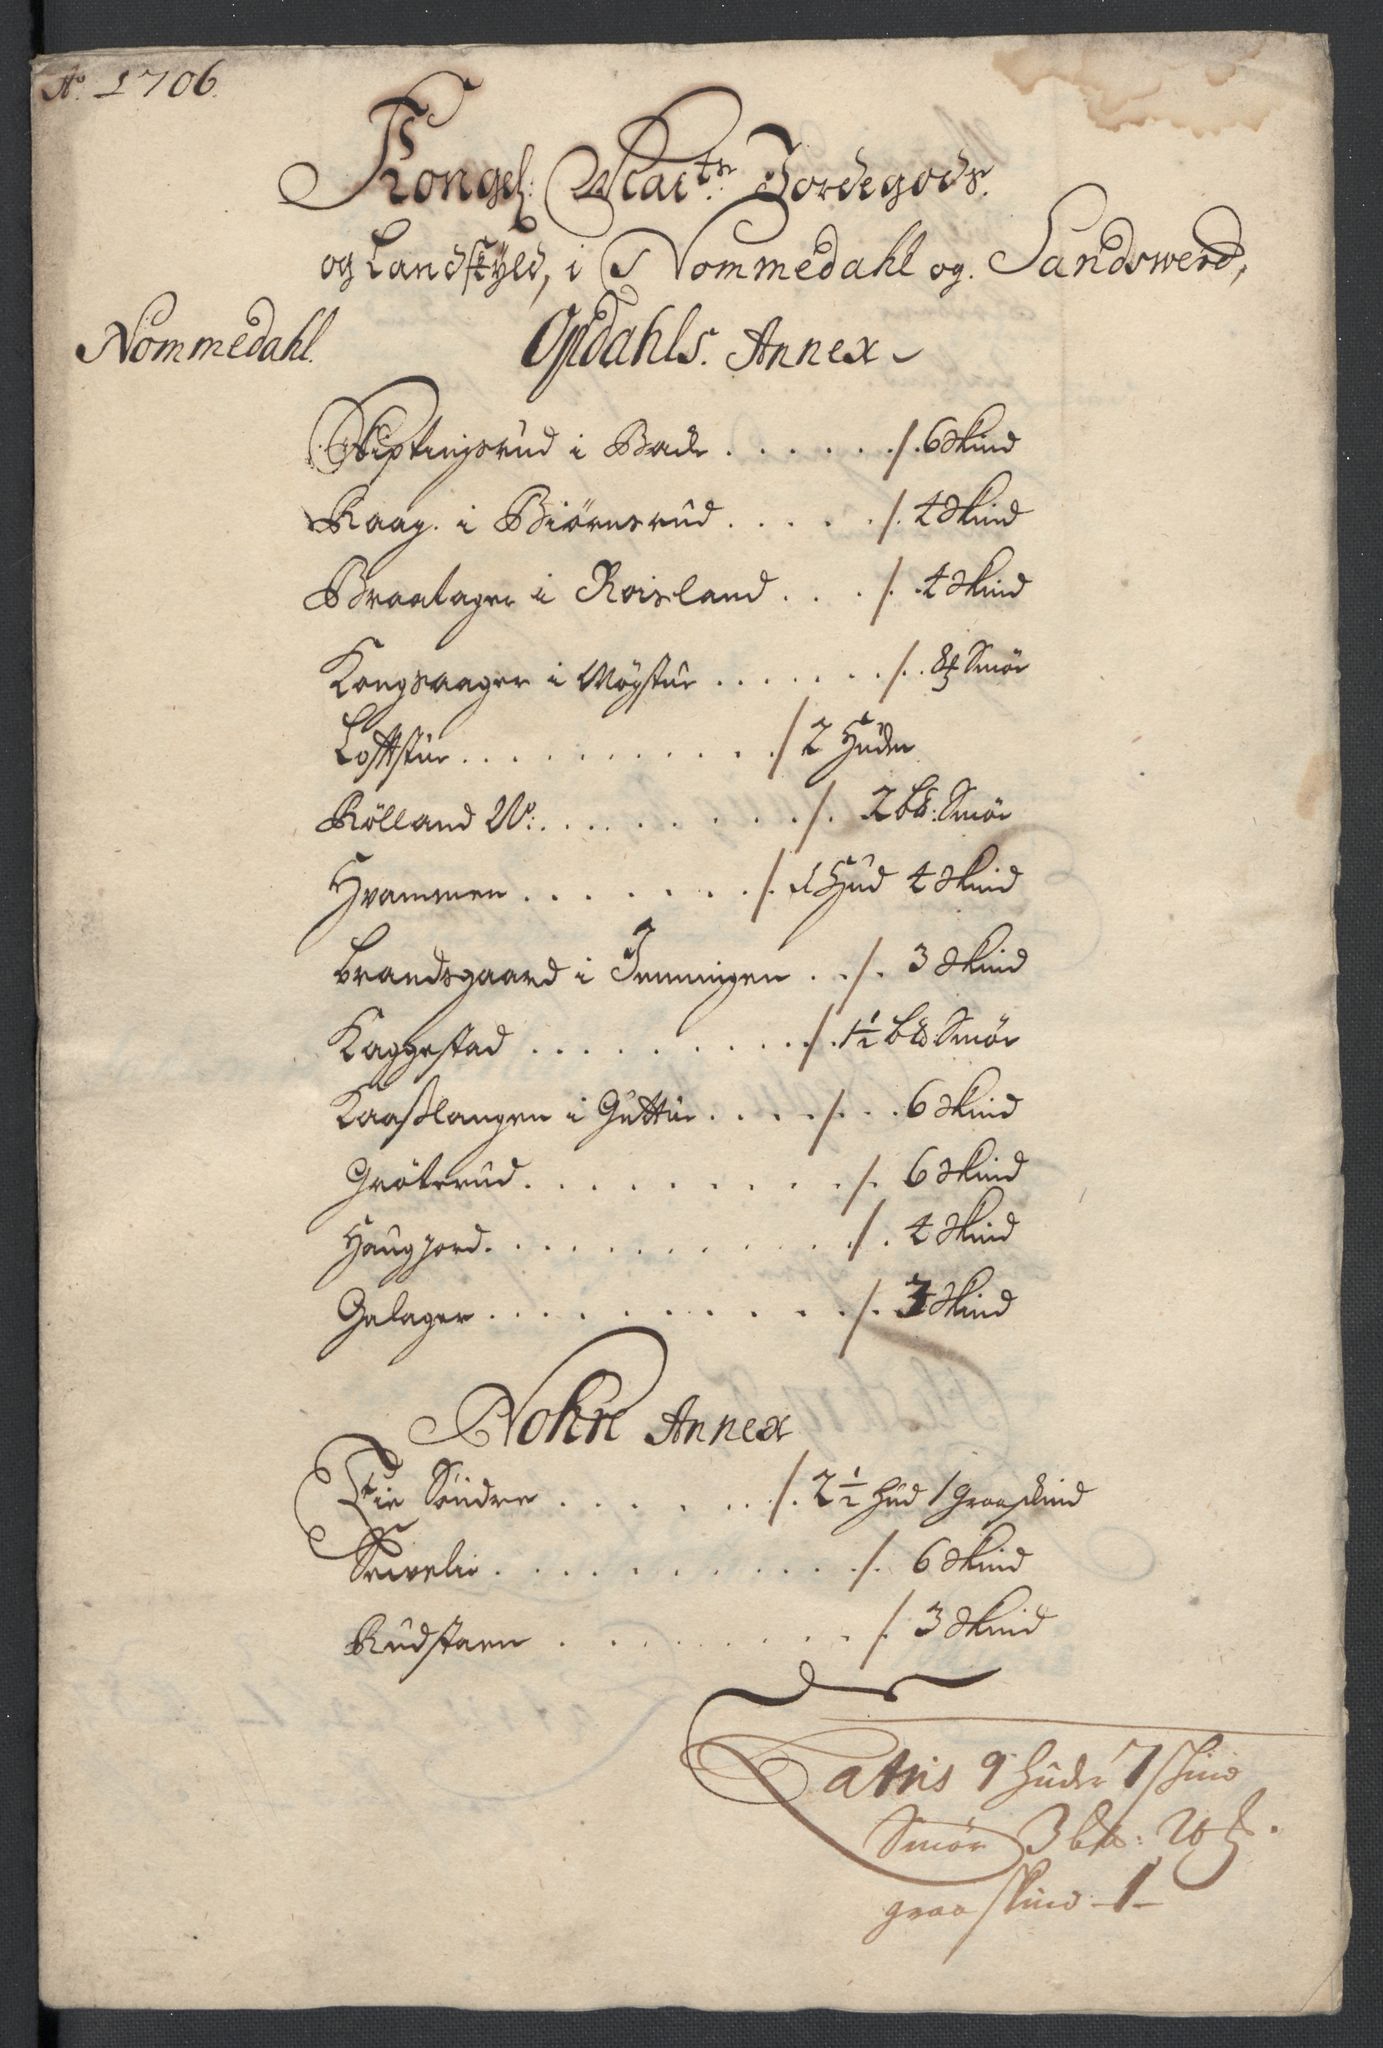 Ao. 1706.
Kongel: Maits. Jordegods.
og Landskyld, i Nommedahl og Sandswerd,
Nommedahl. Opdahls. Annex
Skiptingsrud i Bade ...... /. 6 Skind
Raag. i Biørnsrud ..... /. 4 Skind
Braatager i Roisland ... /. 4 Skind
Kongsaager i Mögstue ...... /. Smör
Loftstue .......... / 2 Huder
Rölland W: ........ /. 2 bd: Smör
Hvammen ....... /. 1 Hud 4 Skind
Brandsgaard i Jenningen .. /. 3 Skind
Kaggestad ......... /. 1½ bd: Smör
Kaaßlangen i Guttue .... /. 6 Skind
Gröterud. ........ /. 6 Skind
Haugjord. .......... /. 4 Skind
Galager .......... /. 3 Skind
Nohre Annex
Lie Söndre ...... /. 2½ Hud 1 graaskind
Servelie .......... /. 6 Skind
Rudstaen ........ /. 3 Skind
Latris 9 huder 7 skind
Smör 3 bd:
graaskind - 1 -